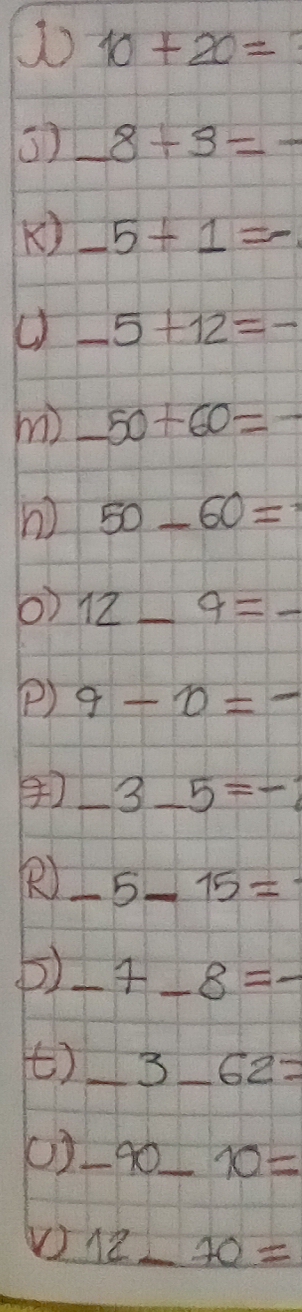 i) 10 + 20 =
J) _ 8 + 3 = -
K) _ 5 + 1 = -
L) _ 5 + 12 = -
m) _ 50 + 60 = -
n) 50 _ 60 =
o) 12 _ 9 = -
P) 9 - 10 = -
q) _ 3 _ 5 = -
R) _ 5 _ 15 =
S) _ 7 _ 8 = -
t) _ 3 _ 62 =
U) _ 90 _ 10 =
V) 12 _ 70 =